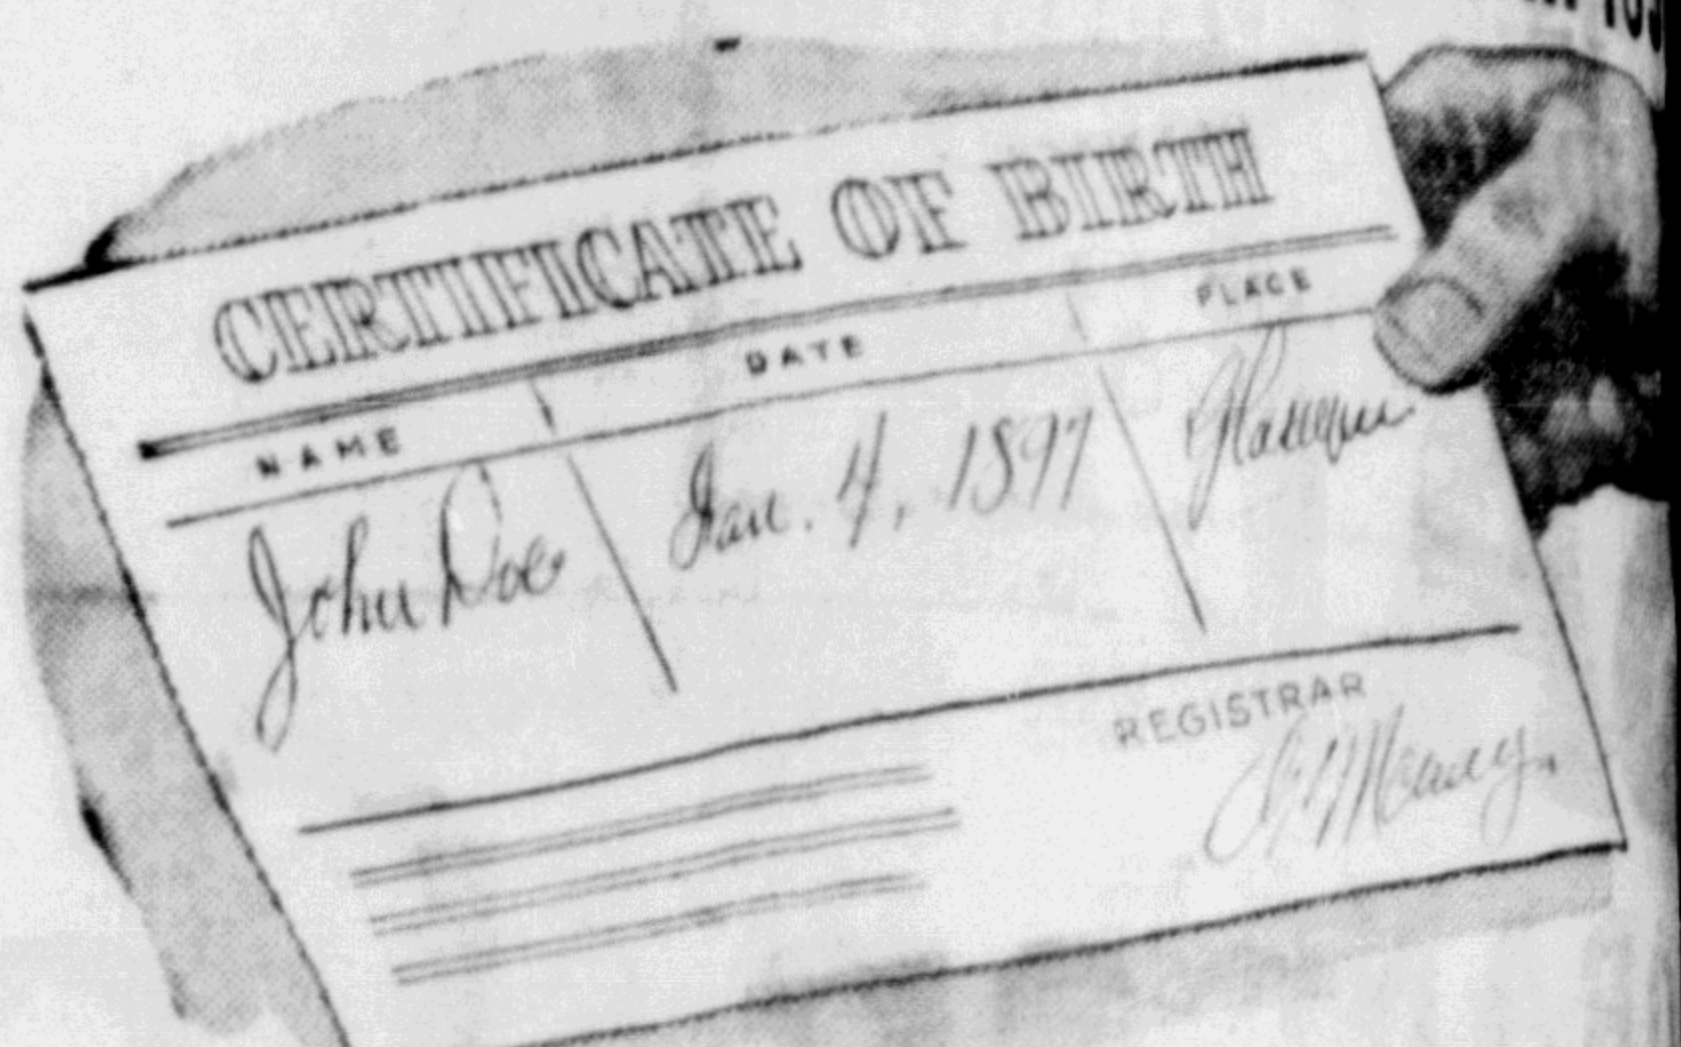 CERTIFICATE OF BIRTH
NAME DATE PLACE
John Doe Jan. 4, 1897 Glasgow
REGISTRAR